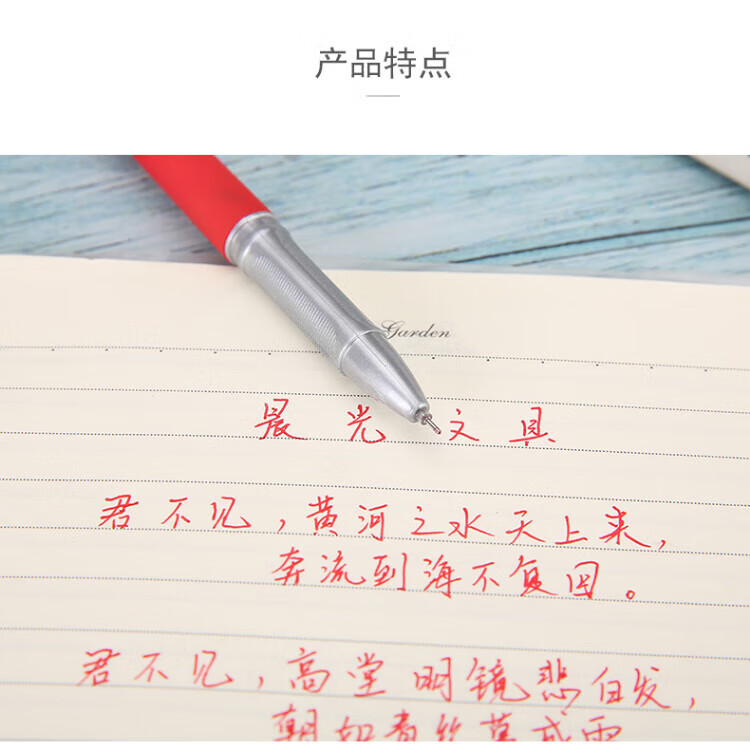 产品特点
Garden
晨光文具
君不见,黄河之水天上来,
奔流到海不复回。
君不见,高堂明镜悲白发,
朝如青丝暮成雪